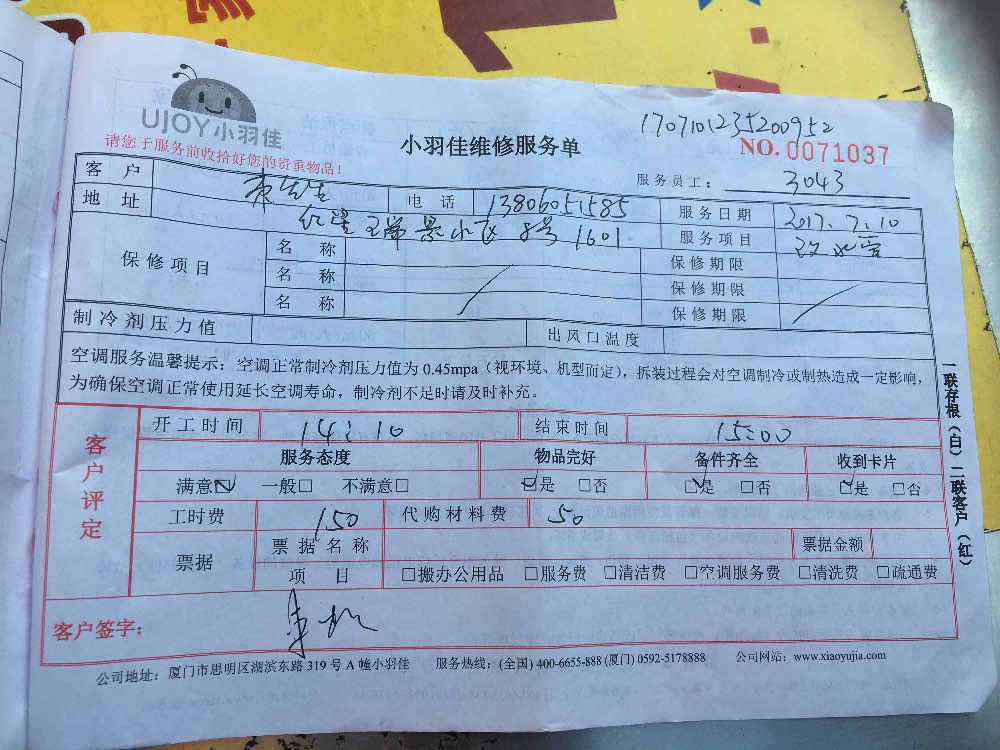 UJOY小羽佳
请您于服务前收拾好您的贵重物品!
小羽佳维修服务单
1707101235200952
NO. 0071037
服务员工: 3043
客户 先生 电话 13806051585 服务日期 2017.7.10
地址 景小区 8号 1601 服务项目 改水管
保修项目 名称 保修期限
名称 保修期限
名称 保修期限
制冷剂压力值 出风口温度
空调服务温馨提示:空调正常制冷剂压力值为 0.45mpa(视环境、机型而定),拆装过程会对空调制冷或制热造成一定影响,
为确保空调正常使用延长空调寿命,制冷剂不足时请及时补充。
一联存根(白)二联客户(红)
客户评定
开工时间 14:10 结束时间 15:00
服务态度 物品完好 备件齐全 收到卡片
满意☑ 一般□ 不满意□ ☑是 □否 ☑是 □否 ☑是 □否
工时费 150 代购材料费 50
票据 票据名称 票据金额
项目 □搬办公用品 □服务费 □清洁费 □空调服务费 □清洗费 □疏通费
客户签字:
公司地址:厦门市思明区湖滨东路 319 号 A 幢小羽佳 服务热线:(全国) 400-6655-888 (厦门) 0592-5178888 公司网站:www.xiaoyujia.com